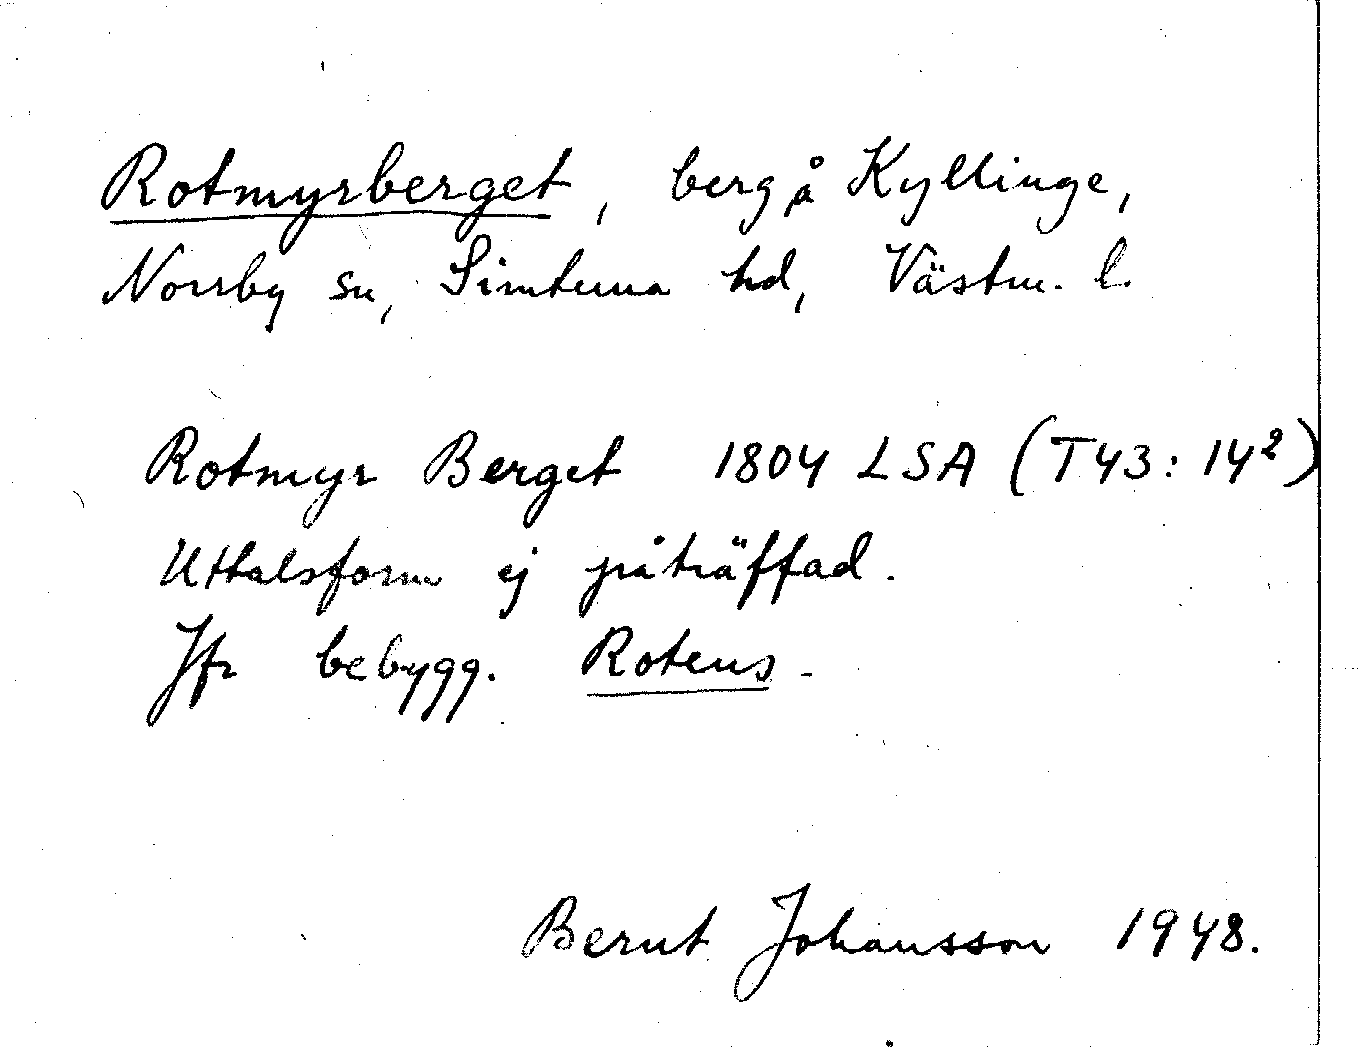 Rotmyrberget, berg å Kyllinge,
Norrby sn, Simtuna hd, Västm. l.
Rotmyr Berget 1804 LSA (T43:14²)
Uttalsform ej påträffad.
Jfr bebygg. Rotens.
Bernt Johansson 1948.